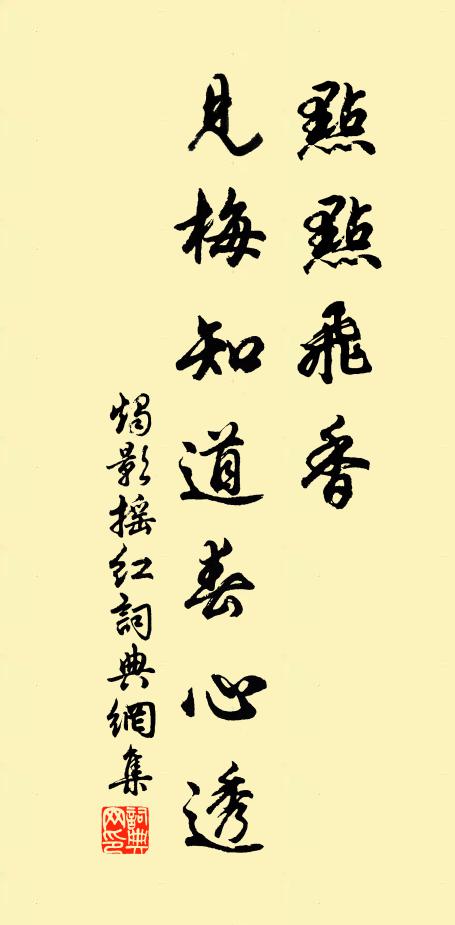 點點飛香
見梅知道春心透
燭影搖紅詞典網集
詞典
网印